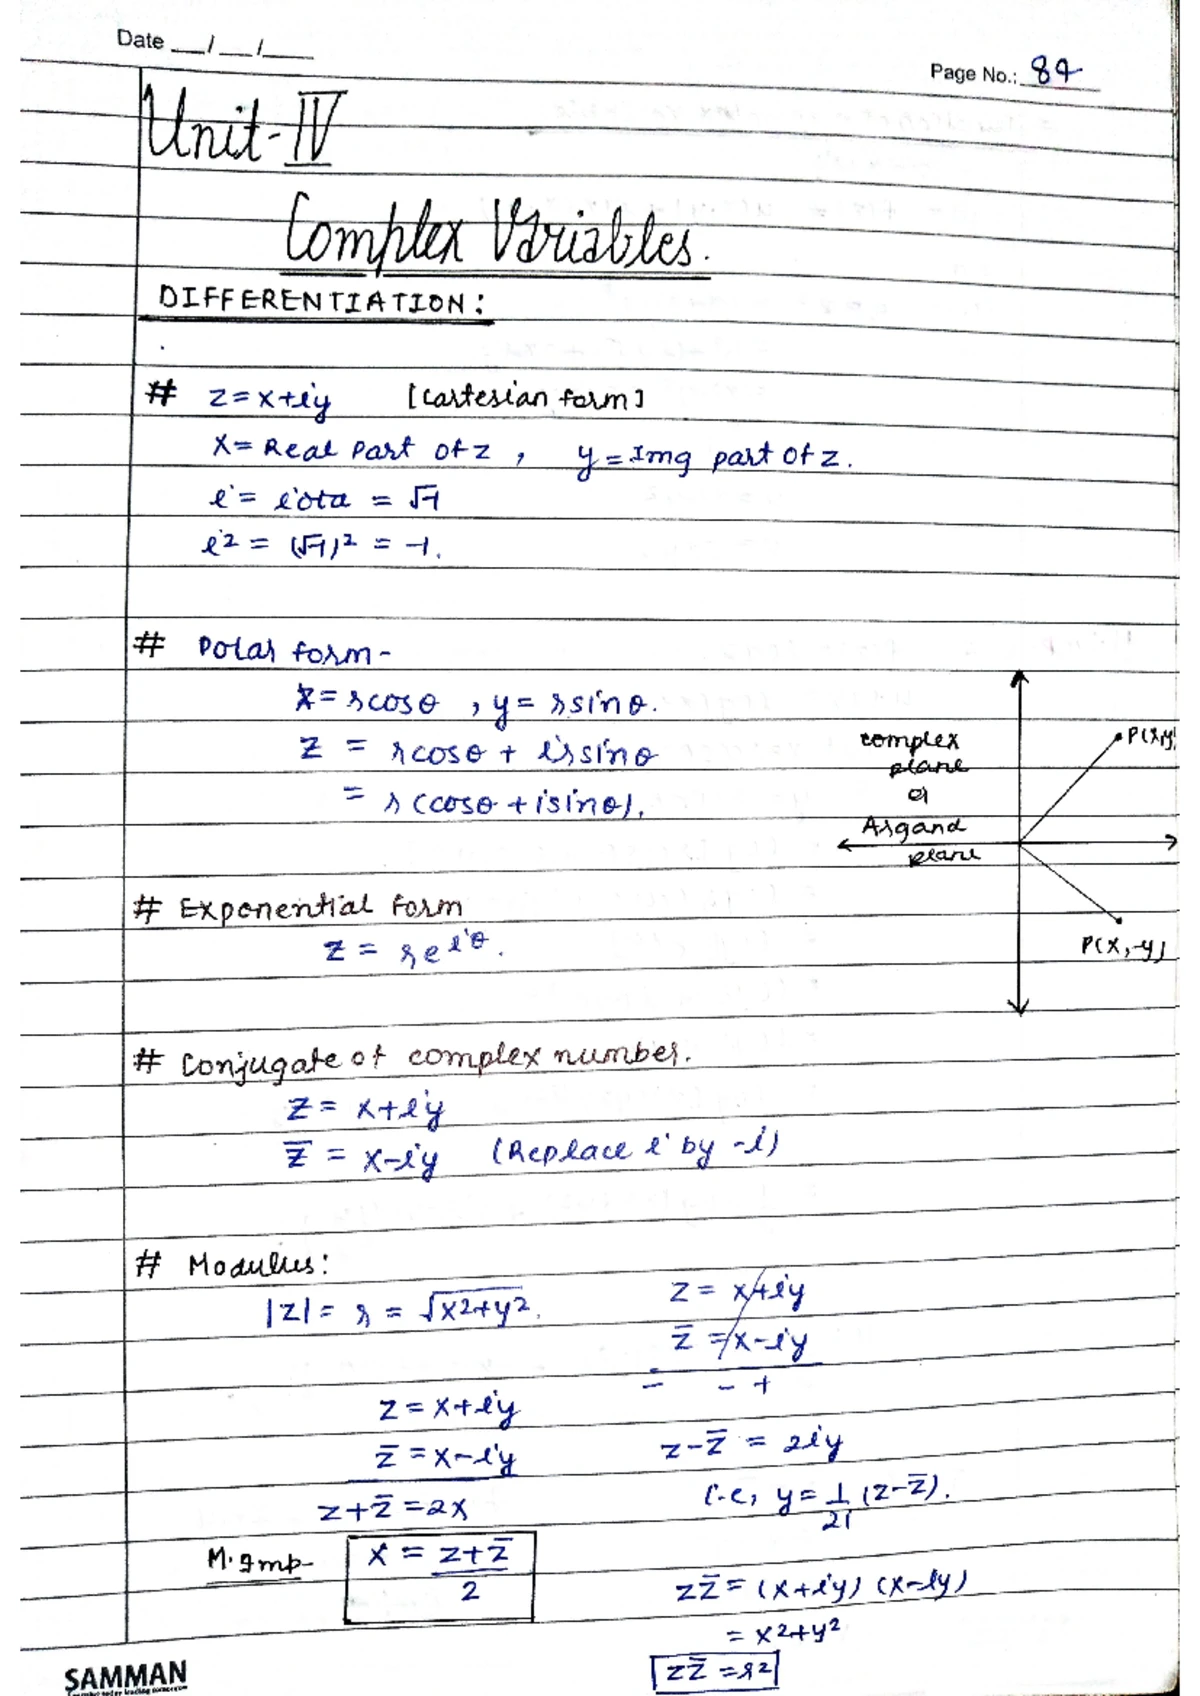 Date __/__/____
Page No.: 84
Unit-IV
Complex Variables.
DIFFERENTIATION:
# z = x+iy [Cartesian form]
x = Real Part of z , y = Img part of z.
i = iota = √-1
i² = (√-1)² = -1.
# Polar form-
x = rcosθ , y = rsinθ.
z = rcosθ + irsinθ
= r(cosθ + isinθ).
complex
plane
or
Argand
plane
P(x,y)
P(x,-y)
# Exponential form
z = re^iθ.
# Conjugate of complex number.
z = x+iy
z̅ = x-iy (Replace i by -i)
# Modulus:
|z| = r = √x²+y².
z = x+iy
z̅ = x-iy
z+z̅ = 2x
M. Imp- x = z+z̅/2
z = x+iy
z̅ = x-iy
- - +
z-z̅ = 2iy
i.e, y = 1/2i (z-z̅).
zz̅ = (x+iy) (x-iy)
= x²+y²
zz̅ = r²
SAMMAN